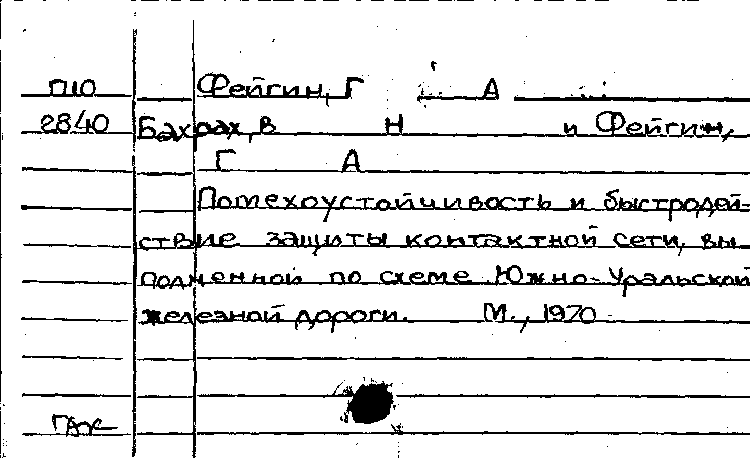 П10 Фейгин, Г А
2840 Бахрах, В Н и Фейгин,
Г А
Помехоустойчивость и быстродей-
ствие защиты контактной сети, вы
полненной по схеме Южно-Уральской
железной дороги. М., 1970